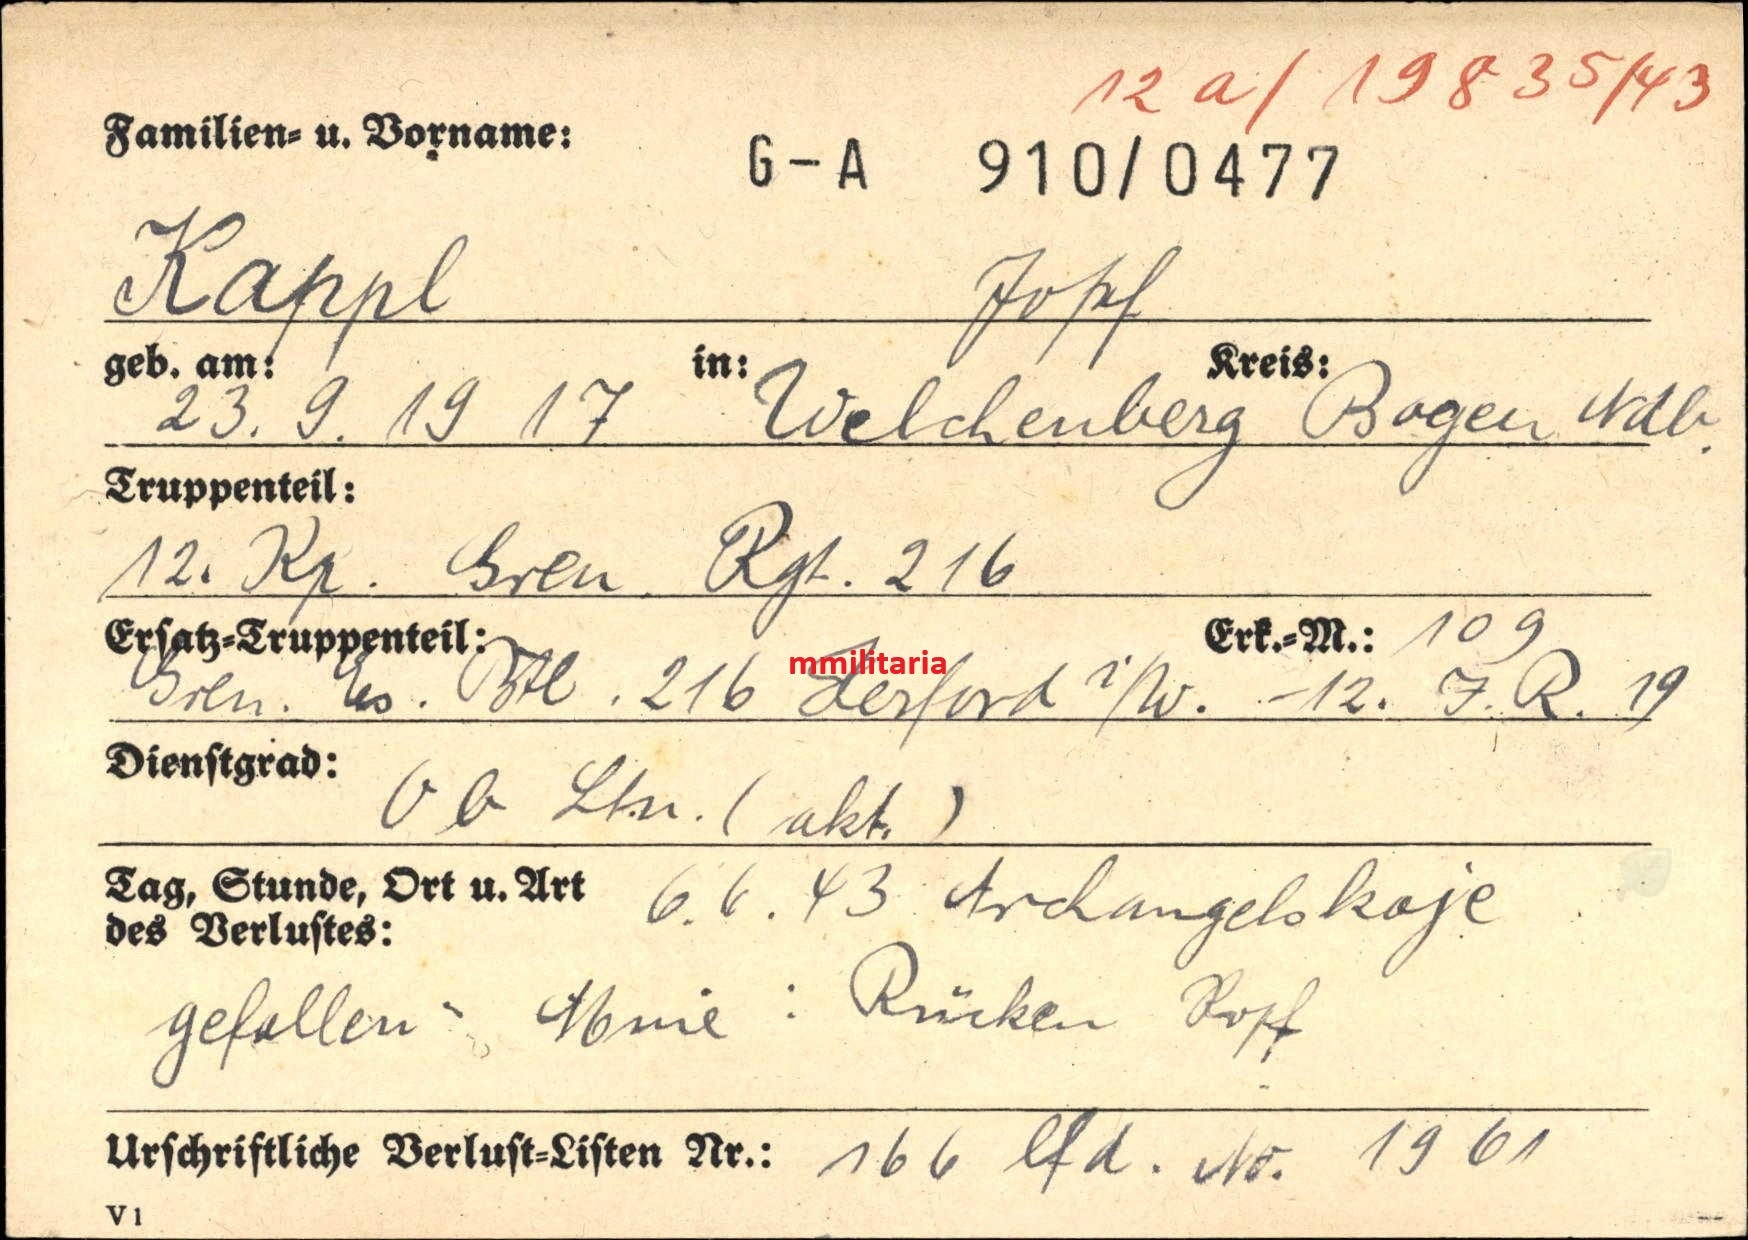 12 a/ 19835/43
Familien- u. Vorname:
G-A 910/0477
Kappl Josef
geb. am: in: Kreis:
23. 9. 1917 Welchenberg Bogen Ndb.
Truppenteil:
12. Kp. Gren. Rgt. 216
Ersatz-Truppenteil: Erk.-M.: 109
mmilitaria
Gren. Ers. Btl. 216 Herford i/W. -12. J.R. 19
Dienstgrad:
Ob Ltn. (akt.)
Tag, Stunde, Ort u. Art 6.6.43 Archangelskoje
des Verlustes:
gefallen - Mine : Rücken Kopf
Urschriftliche Verlust-Listen Nr.: 166 lfd. No. 1961
V 1